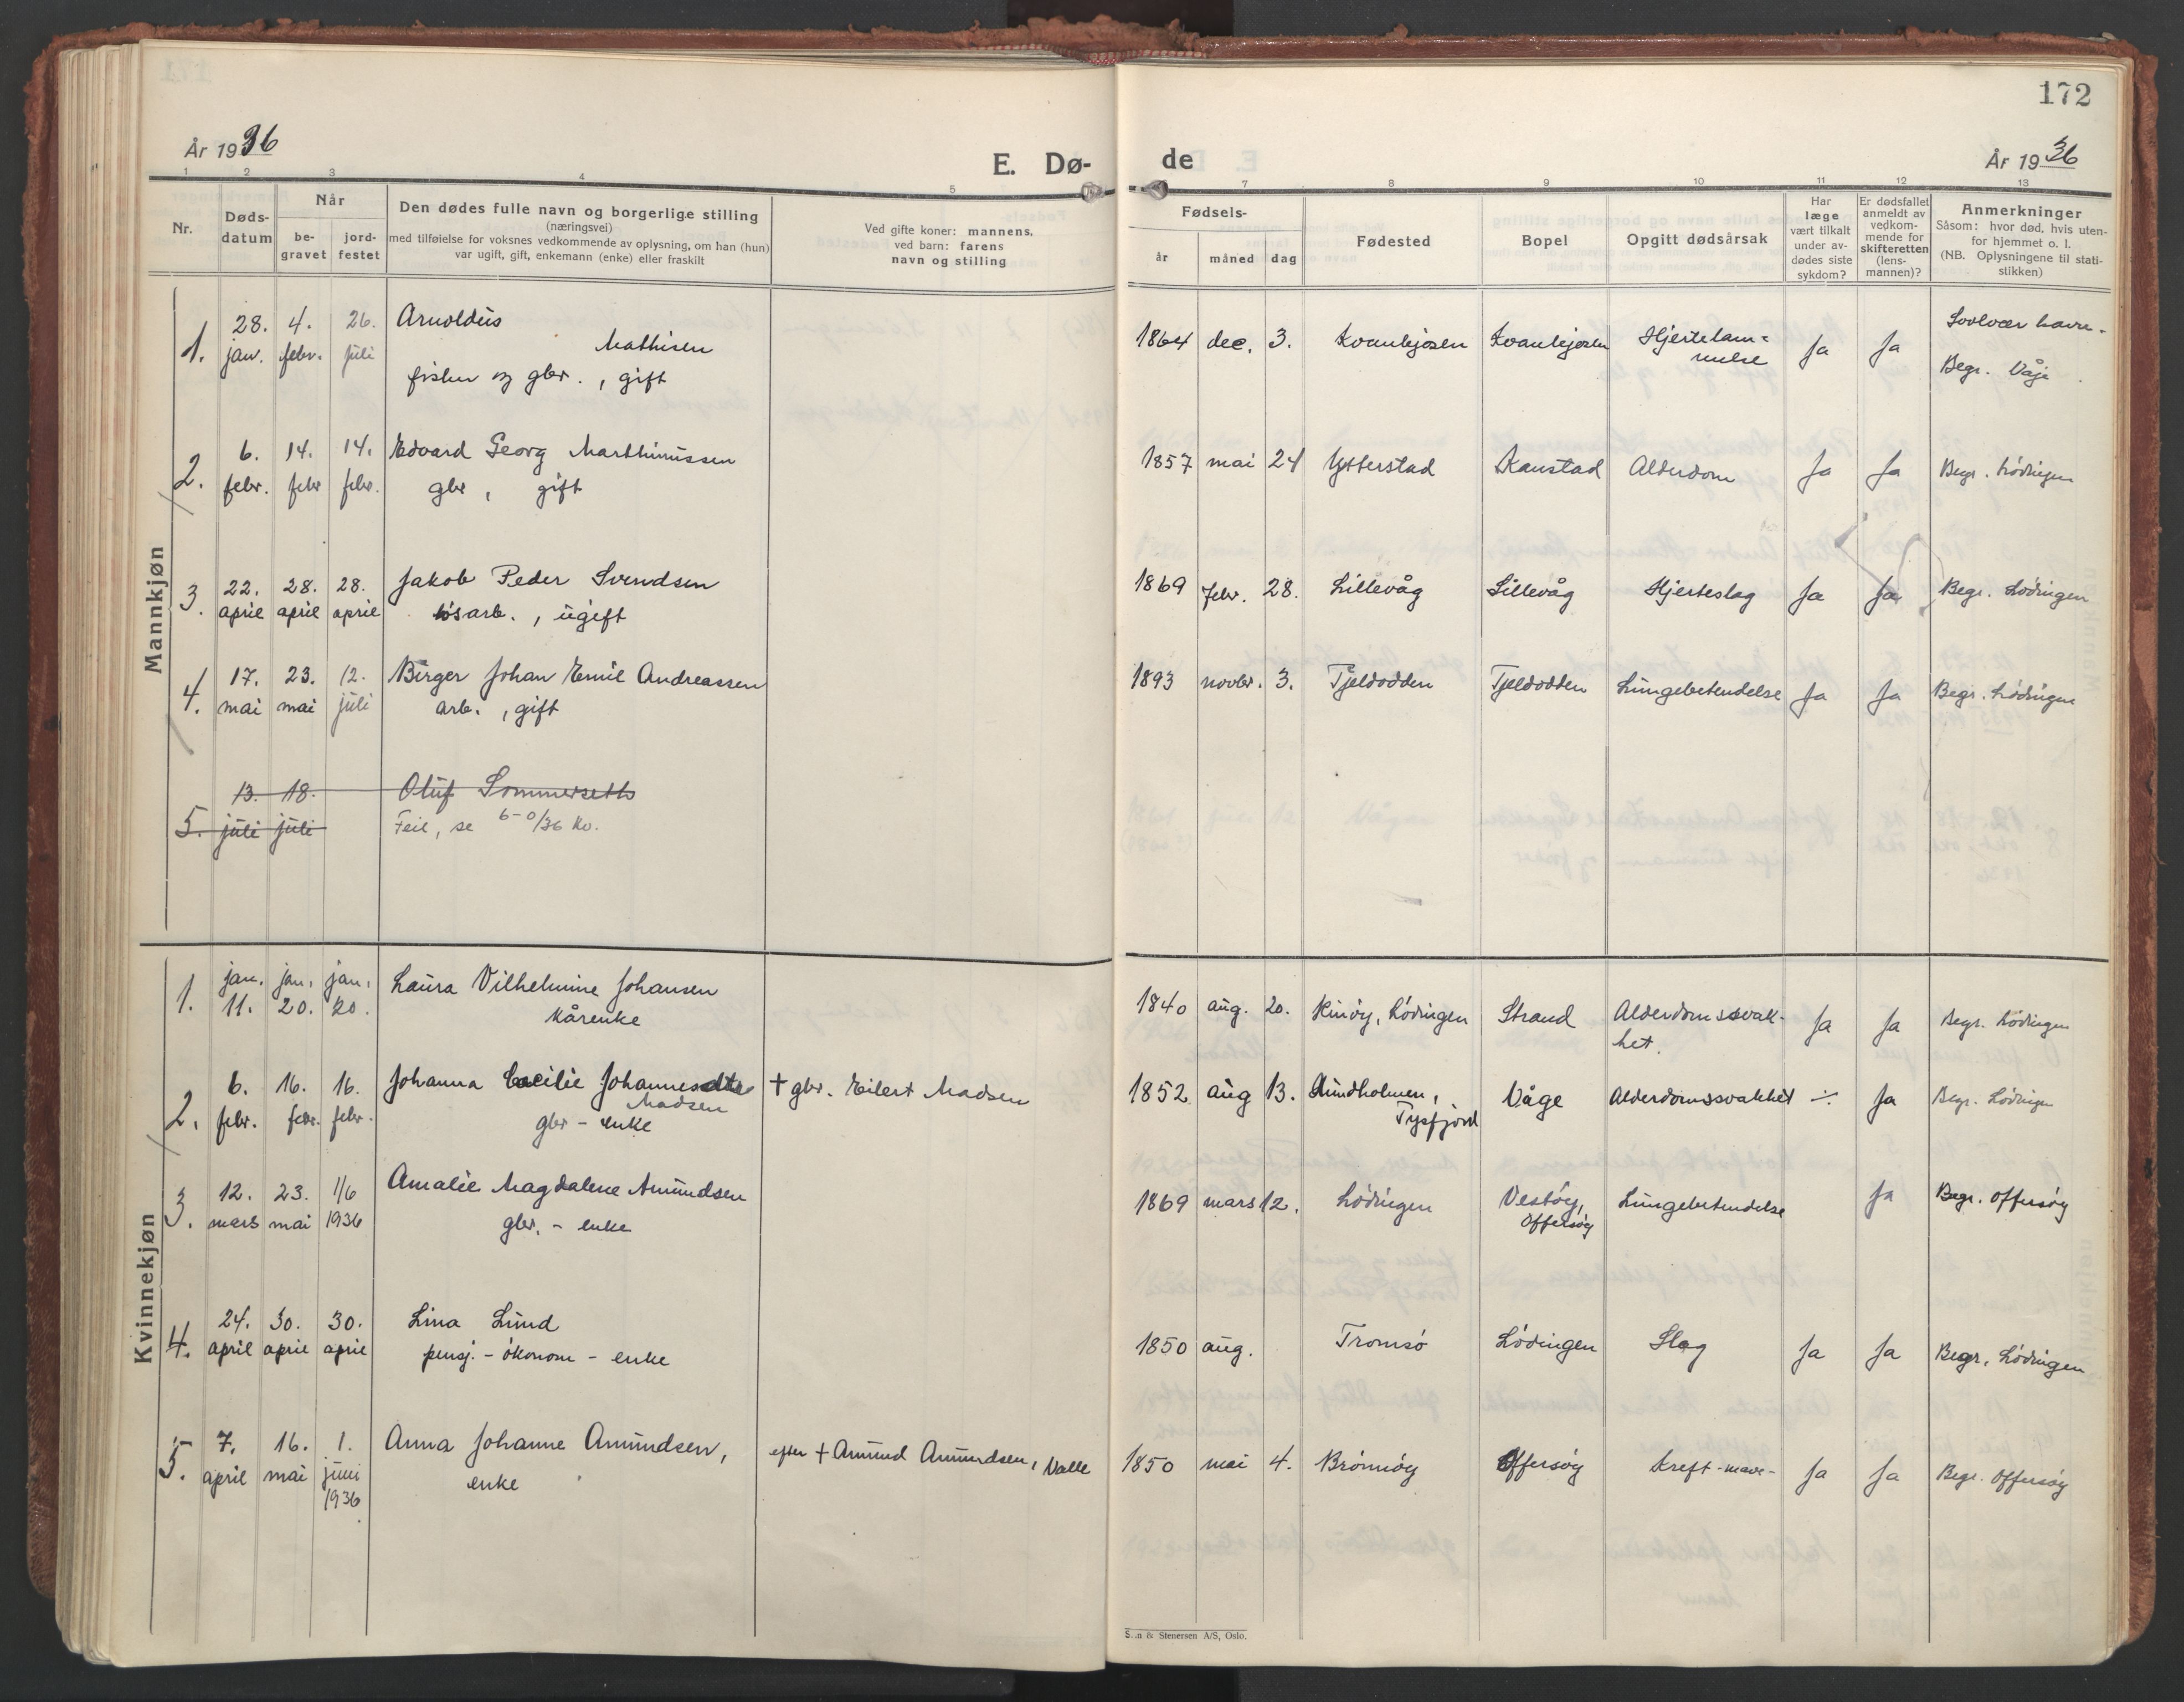 172
År 1936
E. Dø-
de
År 1936
1 2 3 4 5
7 8 9 10 11 12 13
Nr.
Døds-
datum
Når
be-
gravet
jord-
festet
Den dødes fulle navn og borgerlige stilling
(næringsvei)
med tilføielse for voksnes vedkommende av oplysning, om han (hun)
var ugift, gift, enkemann (enke) eller fraskilt
Ved gifte koner: mannens,
ved barn: farens
navn og stilling
Fødsels-
år måned dag
Fødested
Bopel
Opgitt dødsårsak
Har
læge
vært tilkalt
under av-
dødes siste
sykdom?
Er dødsfallet
anmeldt av
vedkom-
mende for
skifteretten
(lens-
mannen)?
Anmerkninger
Såsom: hvor død, hvis uten-
for hjemmet o. l.
(NB. Oplysningene til stati-
stikken)
Mannkjøn
1. 28. jan. 4. febr. 26. juli
Arnoldus
Mathisen
fisker og gbr., gift
1864 dec. 3. Kvankjosen Kvankjosen Hjertelam-
melse
Ja Ja
Svolvær havn.
Begr. Våje
2. 6. febr. 14. febr 14. febr.
Edvard Georg Marthinussen
gbr, gift
1857 mai 24 Ytterstad Kanstad Alderdom Ja Ja Begr. Lödingen
3. 22. april 28. april 28. april
Jakob Peder Svendsen
løsarb., ugift
1869 febr. 28. Lillevåg Lillevåg Hjerteslag Ja Ja Begr. Lödingen
4. 17. mai 23. mai 12. juli
Birger Johan Emil Andreassen
arb., gift
1893 novbr. 3. Tjeldodden Tjeldodden Lungebetendelse Ja Ja Begr. Lödingen
5. 13. juli 18. juli
Oluf Sommerseth
Feil, se 6-0/36 Kv.
Kvinnekjøn
1. jan. 11. jan. 20. jan. 20.
Laura Vilhelmine Johansen
kårenke
1840 aug. 20. Rinøy, Lödingen Strand Alderdomssvak-
het.
Ja Ja Begr. Lödingen
2. 6. febr. 16. febr. 16. febr.
Johanna Cecilie Johannesdtr
Madsen
gbr - enke
+ gbr. Eilert Madsen
1852 aug 13. Rundholmen,
Tysfjord
Våge Alderdomssvakhet ./. Ja Begr. Lödingen
3. 12. mars 23. mai 1/6 1936
Amalie Magdalene Amundsen
gbr. - enke
1869 mars 12. Lödingen Vestöy,
Offersöy
Lungebetendelse Ja Begr. Offersöy
4. 24. april 30. april 30. april
Lina Lund
pensj. - ökonom - enke
1850 aug. Tromsö Lödingen Slag Ja Ja Begr. Lödingen
5. 7. april 16. mai 1. juni 1936
Anna Johanne Amundsen,
enke
efter + Amund Amundsen, Valle
1850 mai 4. Brönnöy Offersöy Kreft - mave - Ja Ja Begr. Offersöy
& Stenersen A/S, Oslo.